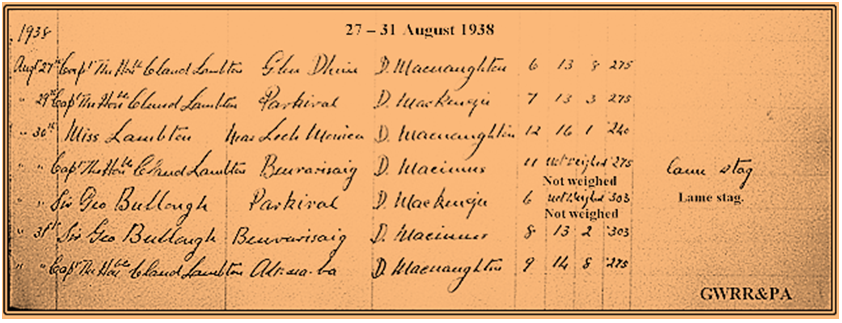 1938 27 – 31 August 1938
Augt 27th Capt The Honble Claud Lambton Glen Dhuie D. Macnaughton 6 13 8 275
" 29th Capt The Honble Claud Lambton Parkival D. Mackenzie 7 13 3 275
" 30th Miss Lambton Near Loch Monica D. Macnaughton 12 16 1 240
" " Capt The Honble Claud Lambton Benvarisaig D. Macinnes 11 not weighed 275 lame stag
Not weighed
" " Sir Geo Bullough Parkival D. Mackenzie 6 not weighed 303 Lame stag.
Not weighed
" 31st Sir Geo Bullough Benvarisaig D. Macinnes 8 13 2 303
" " Capt The Honble Claud Lambton Alt-na-ba D. Macnaughton 9 14 8 275
GWRR&PA